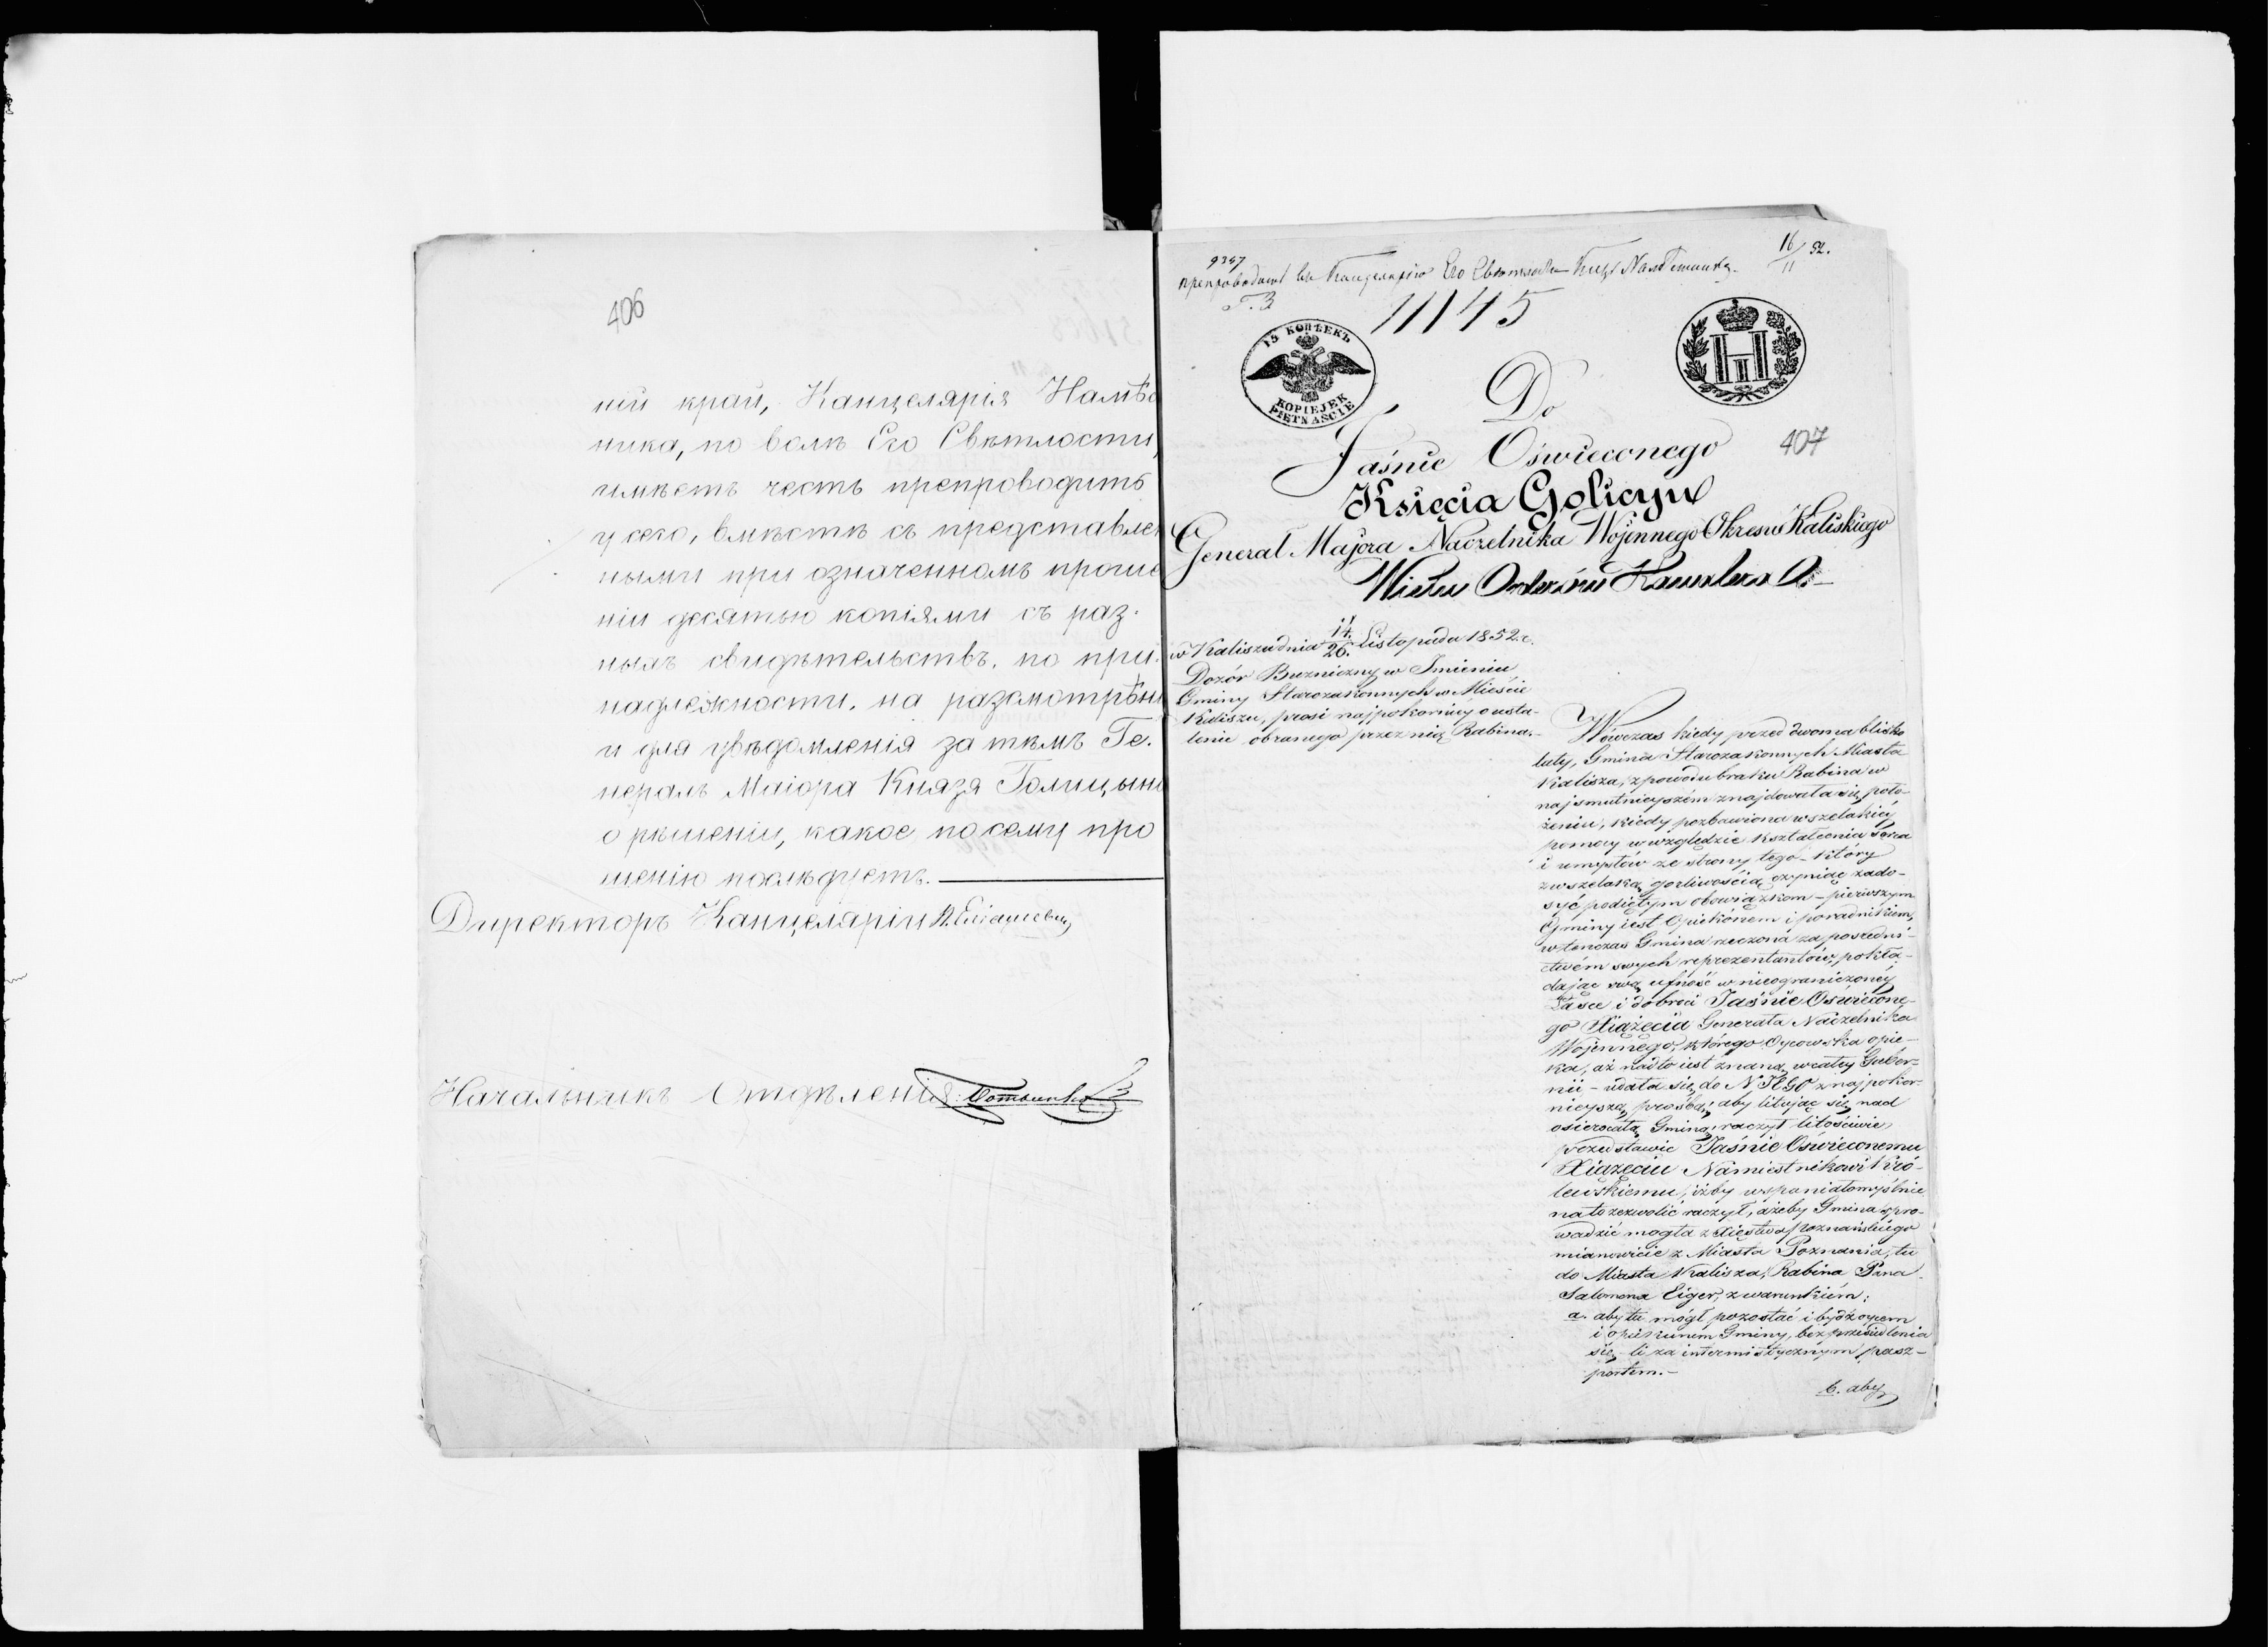 406
ній край, Канцелярія Намѣс
ника, по волѣ Его Свѣтлости,
имѣетъ честь препроводить
у сего, вмѣстѣ съ представлен
ными при означенномъ проше
ніи десятью копіями съ раз-
ныхъ свидѣтельствъ, по при-
надлежности, на разсмотрѣні
и для увѣдомленія за тѣмъ Ге-
нералъ Маіора Князя Голицына
о рѣшеніи, какое по сему про
шенію послѣдуетъ.
Директоръ Канцеляріи
Начальникъ Отдѣленія
9347
16/11 52.
препроводить въ Канцелярію Его Свѣтлости Князя Намѣстника
Г. З
11145
15 КОПѢЕКЪ
KOPIEJEK PIĘTNAŚCIE
Do
Jaśnie Oświeconego
407
Księcia Golicyn
Generał Majora Naczelnika Wojennego Okręsu Kaliskiego
Wielu Orderów Kawalera
w Kaliszu dnia 14./26. Listopada 1852. r.
Dozór Bużniczny w Imieniu
Gminy Starozakonnych w Mieście
Kaliszu, prosi najpokorniéy o usta-
lenie obranego przez nią Rabina.-
Wówczas kiedy przed dwoma blisko
laty, Gmina Starozakonnych Miasta
Kalisza, z powodu braku Rabina w
najsmutnieyszém znajdowała się poło-
żeniu, kiedy pozbawiona wszelakiéy
pomocy w względzie kształcenia serca
i umysłów ze strony tego - który
z wszelaką gorliwością czyniąc zado-
syć podiętym obowiązkom - pierwszym
Gminy iest Opiekónem i poradnikiem,
wtenczas Gmina rzeczona za pośredni-
ctwém swych reprezentantów, pokła-
dając swą ufność w nieograniczonéy
Łasce i dobroci Jaśnie Oświecone-
go Xiążęcia Generała Naczelnika
Wojennego, którego Oycowska opie-
ka, aż nadto iest znaną w całéy Guber-
nii - udała się do N JEGO z najpokor-
nieyszą prośbą, aby litując się nad
osierociałą Gminą, raczył litościwie
przedstawić Jaśnie Oświeconemu
Xiążęciu Namiestnikowi Kró-
lewskiemu, iżby wspaniałomyślnie
na to zezwolić raczył, ażeby Gmina spro-
wadzić mogła z Xięstwa Poznańskiego
mianowicie z Miasta Poznania, tu
do Miasta Kalisza, Rabina Pana
Salomona Eiger, z warunkiém:
a. aby tu mógł pozostać i bydź oycem
i opiekunem Gminy, bez przesiedlenia
się - li za intermistycznym pasz-
portem.-
b. aby